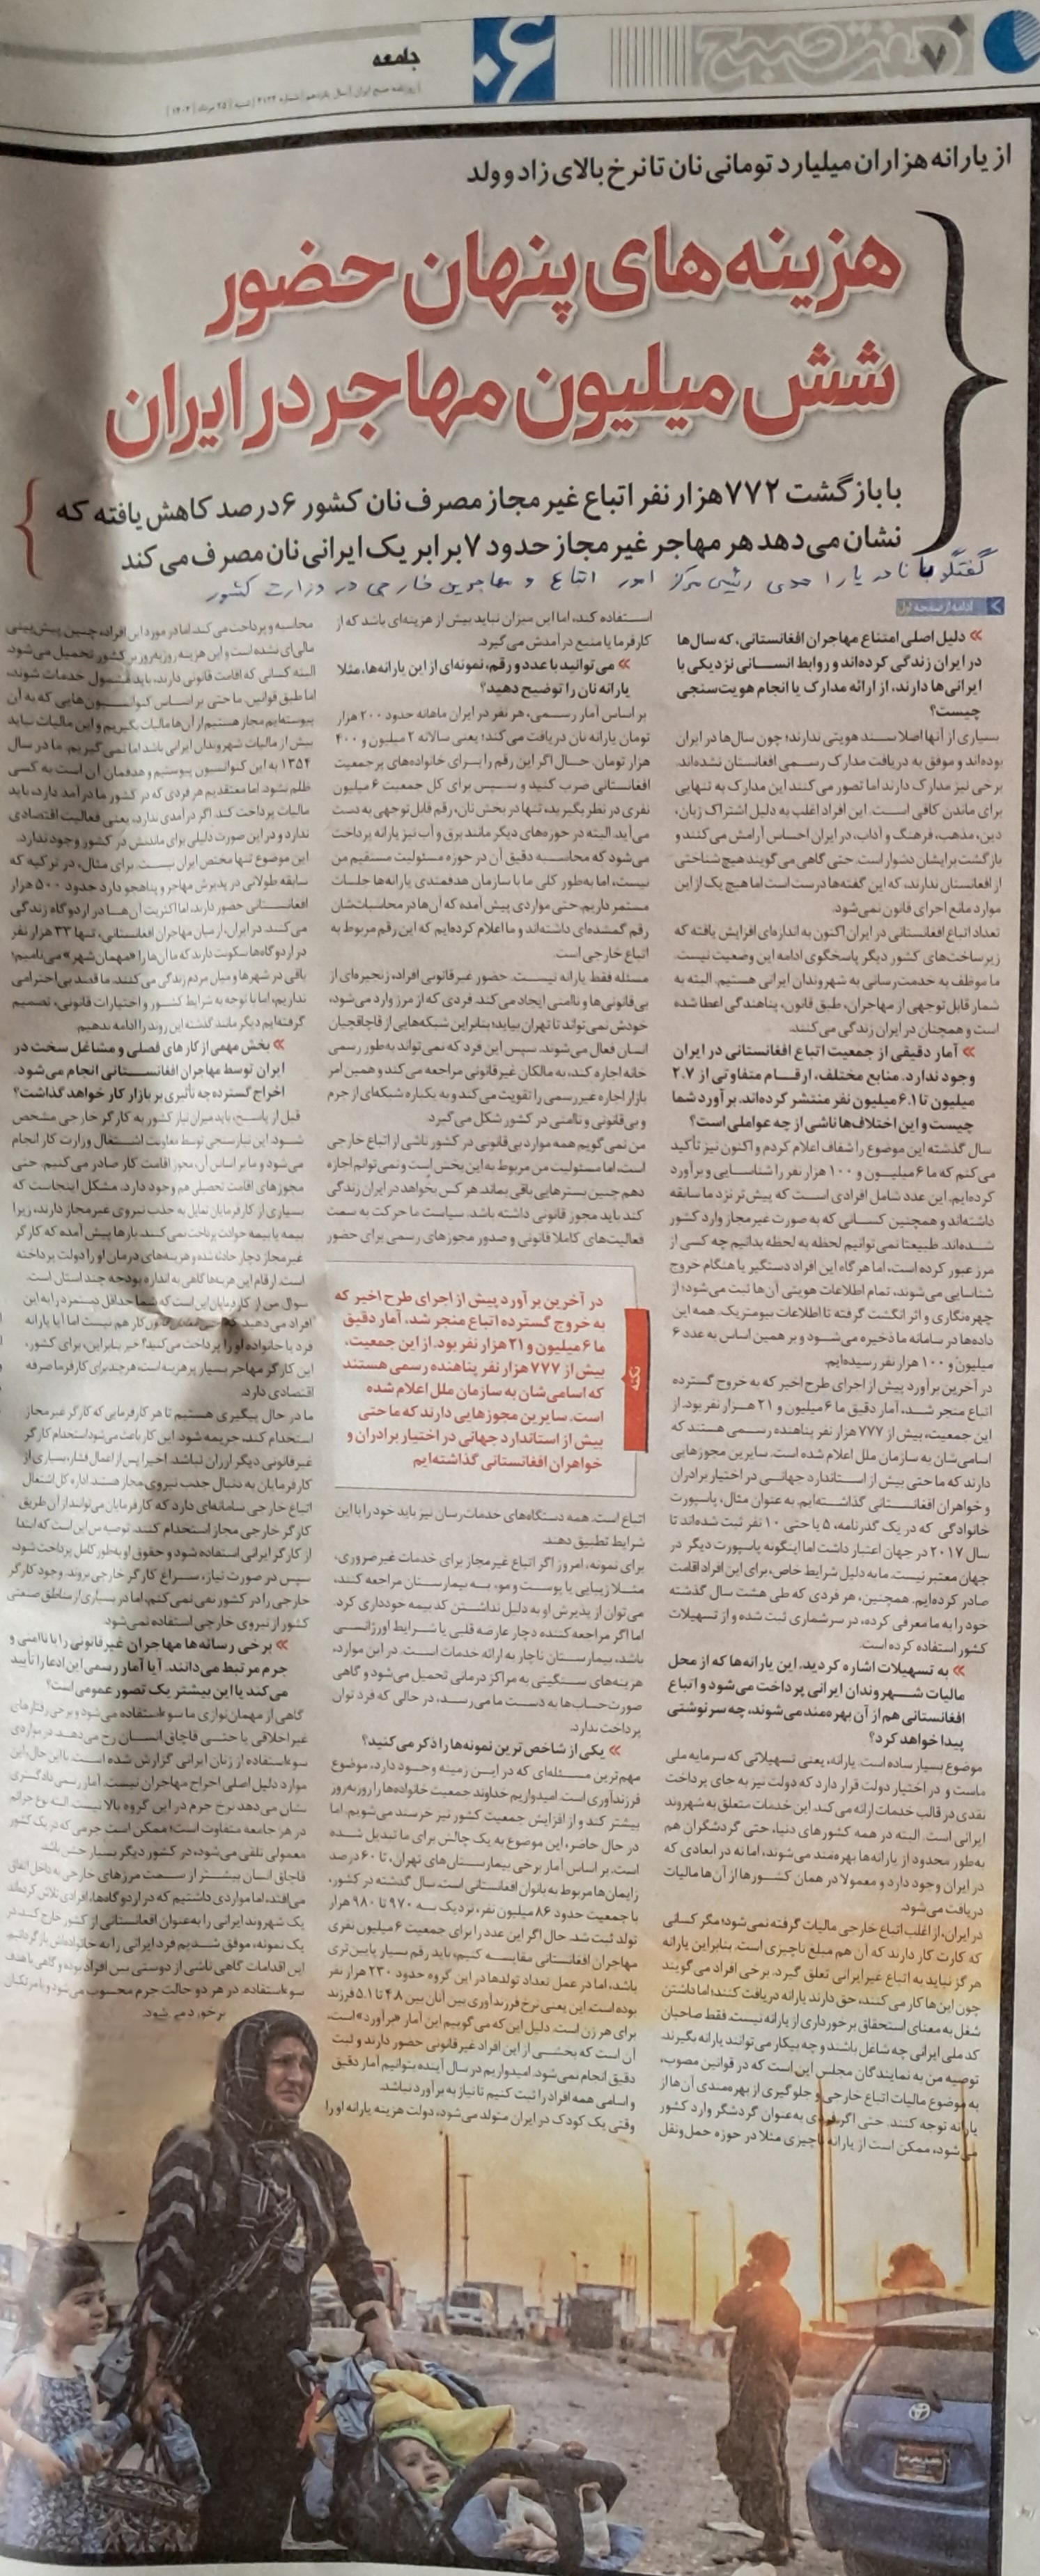 هفت صبح
۷
۰۶
جامعه
روزنامه صبح ایران | سال یازدهم | شماره | شنبه | ۲۵ مرداد | ۱۴۰۴
از یارانه هزاران میلیارد تومانی نان تا نرخ بالای زاد و ولد
هزینه‌های پنهان حضور
شش میلیون مهاجر در ایران
با بازگشت ۷۷۲ هزار نفر اتباع غیر مجاز مصرف نان کشور ۶ درصد کاهش یافته که
نشان می‌دهد هر مهاجر غیر مجاز حدود ۷ برابر یک ایرانی نان مصرف می کند
گفتگو با نادر یاراحمدی رئیس مرکز امور اتباع و مهاجرین خارجی در وزارت کشور
ادامه از صفحه اول
» دلیل اصلی امتناع مهاجران افغانستانی، که سال‌ها
در ایران زندگی کرده‌اند و روابط انسانی نزدیکی با
ایرانی‌ها دارند، از ارائه مدارک یا انجام هویت‌سنجی
چیست؟
بسیاری از آنها اصلا سند هویتی ندارند؛ چون سال‌ها در ایران
بوده‌اند و موفق به دریافت مدارک رسمی افغانستان نشده‌اند.
برخی نیز مدارک دارند اما تصور می‌کنند این مدارک به تنهایی
برای ماندن کافی است. این افراد اغلب به دلیل اشتراک زبان،
دین، مذهب، فرهنگ و آداب، در ایران احساس آرامش می‌کنند و
بازگشت برایشان دشوار است. حتی گاهی می‌گویند هیچ شناختی
از افغانستان ندارند، که این گفته‌ها درست است اما هیچ یک از این
موارد مانع اجرای قانون نمی‌شود.
تعداد اتباع افغانستانی در ایران اکنون به اندازه‌ای افزایش یافته که
زیرساخت‌های کشور دیگر پاسخگوی ادامه این وضعیت نیست.
ما موظف به خدمت‌رسانی به شهروندان ایرانی هستیم. البته به
شمار قابل توجهی از مهاجران، طبق قانون، پناهندگی اعطا شده
است و همچنان در ایران زندگی می‌کنند.
» آمار دقیقی از جمعیت اتباع افغانستانی در ایران
وجود ندارد. منابع مختلف، ارقام متفاوتی از ۲.۷
میلیون تا ۶.۱ میلیون نفر منتشر کرده‌اند. برآورد شما
چیست و این اختلاف‌ها ناشی از چه عواملی است؟
سال گذشته این موضوع را شفاف اعلام کردم و اکنون نیز تأکید
می‌کنم که ما ۶ میلیون و ۱۰۰ هزار نفر را شناسایی و برآورد
کرده‌ایم. این عدد شامل افرادی است که پیش‌تر نزد ما سابقه
داشته‌اند و همچنین کسانی که به صورت غیرمجاز وارد کشور
شده‌اند. طبیعتا نمی‌توانیم لحظه به لحظه بدانیم چه کسی از
مرز عبور کرده است، اما هر گاه این افراد دستگیر یا هنگام خروج
شناسایی می‌شوند، تمام اطلاعات هویتی آن‌ها ثبت می‌شود؛ از
چهره‌نگاری و اثر انگشت گرفته تا اطلاعات بیومتریک. همه این
داده‌ها در سامانه ما ذخیره می‌شود و بر همین اساس به عدد ۶
میلیون و ۱۰۰ هزار نفر رسیده‌ایم.
در آخرین برآورد پیش از اجرای طرح اخیر که به خروج گسترده
اتباع منجر شد، آمار دقیق ما ۶ میلیون و ۲۱ هزار نفر بود. از
این جمعیت، بیش از ۷۷۷ هزار نفر پناهنده رسمی هستند که
اسامی‌شان به سازمان ملل اعلام شده است. سایرین مجوزهایی
دارند که ما حتی بیش از استاندارد جهانی در اختیار برادران
و خواهران افغانستانی گذاشته‌ایم. به عنوان مثال، پاسپورت
خانوادگی که در یک گذرنامه، ۵ یا حتی ۱۰ نفر ثبت شده‌اند تا
سال ۲۰۱۷ در جهان اعتبار داشت اما اینگونه پاسپورت دیگر در
جهان معتبر نیست. ما به دلیل شرایط خاص، برای این افراد اقامت
صادر کرده‌ایم. همچنین، هر فردی که طی هشت سال گذشته
خود را به ما معرفی کرده، در سرشماری ثبت شده و از تسهیلات
کشور استفاده کرده است.
» به تسهیلات اشاره کردید. این یارانه‌ها که از محل
مالیات شهروندان ایرانی پرداخت می‌شود و اتباع
افغانستانی هم از آن بهره‌مند می‌شوند، چه سرنوشتی
پیدا خواهد کرد؟
موضوع بسیار ساده است. یارانه، یعنی تسهیلاتی که سرمایه ملی
ماست و در اختیار دولت قرار دارد که دولت نیز به جای پرداخت
نقدی در قالب خدمات ارائه می‌کند. این خدمات متعلق به شهروند
ایرانی است. البته در همه کشورهای دنیا، حتی گردشگران هم
به‌طور محدود از یارانه‌ها بهره‌مند می‌شوند، اما نه در ابعادی که
در ایران وجود دارد و معمولا در همان کشورها از آن‌ها مالیات
دریافت می‌شود.
در ایران، از اغلب اتباع خارجی مالیات گرفته نمی‌شود؛ مگر کسانی
که کارت کار دارند که آن هم مبلغ ناچیزی است. بنابراین یارانه
هرگز نباید به اتباع غیرایرانی تعلق گیرد. برخی افراد می‌گویند
چون این‌ها کار می‌کنند، حق دارند یارانه دریافت کنند؛ اما داشتن
شغل به معنای استحقاق برخورداری از یارانه نیست. فقط صاحبان
کد ملی ایرانی چه شاغل باشند و چه بیکار می‌توانند یارانه بگیرند.
توصیه من به نمایندگان مجلس این است که در قوانین مصوب،
به موضوع مالیات اتباع خارجی و جلوگیری از بهره‌مندی آن‌ها از
یارانه توجه کنند. حتی اگر فردی به‌عنوان گردشگر وارد کشور
می‌شود، ممکن است از یارانه ناچیزی مثلا در حوزه حمل‌ونقل
استفاده کند، اما این میزان نباید بیش از هزینه‌ای باشد که از
کارفرما یا منبع درآمدش می‌گیرد.
» می‌توانید با عدد و رقم، نمونه‌ای از این یارانه‌ها، مثلا
یارانه نان را توضیح دهید؟
بر اساس آمار رسمی، هر نفر در ایران ماهانه حدود ۲۰۰ هزار
تومان یارانه نان دریافت می‌کند؛ یعنی سالانه ۲ میلیون و ۴۰۰
هزار تومان. حال اگر این رقم را برای خانواده‌های پرجمعیت
افغانستانی ضرب کنید و سپس برای کل جمعیت ۶ میلیون
نفری در نظر بگیرید، تنها در بخش نان، رقم قابل توجهی به دست
می‌آید. البته در حوزه‌های دیگر مانند برق و آب نیز یارانه پرداخت
می‌شود که محاسبه دقیق آن در حوزه مسئولیت مستقیم من
نیست، اما به‌طور کلی ما با سازمان هدفمندی یارانه‌ها جلسات
مستمر داریم. حتی مواردی پیش آمده که آن‌ها در محاسباتشان
رقم گمشده‌ای داشته‌اند و ما اعلام کرده‌ایم که این رقم مربوط به
اتباع خارجی است.
مسئله فقط یارانه نیست. حضور غیرقانونی افراد، زنجیره‌ای از
بی‌قانونی‌ها و ناامنی ایجاد می‌کند. فردی که از مرز وارد می‌شود،
خودش نمی‌تواند تا تهران بیاید؛ بنابراین شبکه‌هایی از قاچاقچیان
انسان فعال می‌شوند. سپس این فرد که نمی‌تواند به‌طور رسمی
خانه اجاره کند، به مالکان غیرقانونی مراجعه می‌کند و همین امر
بازار اجاره غیررسمی را تقویت می‌کند و به یکباره شبکه‌ای از جرم
و بی‌قانونی و ناامنی در کشور شکل می‌گیرد.
من نمی‌گویم همه موارد بی‌قانونی در کشور ناشی از اتباع خارجی
است، اما مسئولیت من مربوط به این بخش است و نمی‌توانم اجازه
دهم چنین بسترهایی باقی بماند. هر کس بخواهد در ایران زندگی
کند باید مجوز قانونی داشته باشد. سیاست ما حرکت به سمت
فعالیت‌های کاملا قانونی و صدور مجوزهای رسمی برای حضور
نکته
در آخرین برآورد پیش از اجرای طرح اخیر که
به خروج گسترده اتباع منجر شد، آمار دقیق
ما ۶ میلیون و ۲۱ هزار نفر بود. از این جمعیت،
بیش از ۷۷۷ هزار نفر پناهنده رسمی هستند
که اسامی‌شان به سازمان ملل اعلام شده
است. سایرین مجوزهایی دارند که ما حتی
بیش از استاندارد جهانی در اختیار برادران و
خواهران افغانستانی گذاشته‌ایم
اتباع است. همه دستگاه‌های خدمات‌رسان نیز باید خود را با این
شرایط تطبیق دهند.
برای نمونه، امروز اگر اتباع غیرمجاز برای خدمات غیرضروری،
مثلا زیبایی یا پوست و مو، به بیمارستان مراجعه کنند،
می‌توان از پذیرش او به دلیل نداشتن کد بیمه خودداری کرد.
اما اگر مراجعه کننده دچار عارضه قلبی یا شرایط اورژانسی
باشد، بیمارستان ناچار به ارائه خدمات است. در این موارد،
هزینه‌های سنگینی به مراکز درمانی تحمیل می‌شود و گاهی
صورت‌حساب‌ها به دست ما می‌رسد، در حالی که فرد توان
پرداخت ندارد.
» یکی از شاخص‌ترین نمونه‌ها را ذکر می‌کنید؟
مهم‌ترین مسئله‌ای که در این زمینه وجود دارد، موضوع
فرزندآوری است. امیدواریم خداوند جمعیت خانواده‌ها را روزبه‌روز
بیشتر کند و از افزایش جمعیت کشور نیز خرسند می‌شویم. اما
در حال حاضر، این موضوع به یک چالش برای ما تبدیل شده
است. بر اساس آمار برخی بیمارستان‌های تهران، تا ۶۰ درصد
زایمان‌ها مربوط به بانوان افغانستانی است. سال گذشته در کشور،
با جمعیت حدود ۸۶ میلیون نفر، نزدیک به ۹۷۰ تا ۹۸۰ هزار
تولد ثبت شد. حال اگر این عدد را برای جمعیت ۶ میلیون نفری
مهاجران افغانستانی مقایسه کنیم، باید رقم بسیار پایین‌تری
باشد، اما در عمل تعداد تولدها در این گروه حدود ۲۳۰ هزار نفر
بوده است. این یعنی نرخ فرزندآوری بین آنان بین ۴.۸ تا ۵.۱ فرزند
برای هر زن است. دلیل این که می‌گوییم این آمار «برآورد» است،
آن است که بخشی از این افراد غیرقانونی حضور دارند و ثبت
دقیق انجام نمی‌شود. امیدواریم در سال آینده بتوانیم آمار دقیق
و اسامی همه افراد را ثبت کنیم تا نیاز به برآورد نباشد.
وقتی یک کودک در ایران متولد می‌شود، دولت هزینه یارانه او را
محاسبه و پرداخت می‌کند اما در مورد این افراد، چنین پیش‌بینی
مالی‌ای نشده است و این هزینه روزبه‌روز بر کشور تحمیل می‌شود.
البته کسانی که اقامت قانونی دارند، باید مشمول خدمات شوند،
اما طبق قوانین، ما حتی بر اساس کنوانسیون‌هایی که به آن
پیوسته‌ایم مجاز هستیم از آن‌ها مالیات بگیریم و این مالیات نباید
بیش از مالیات شهروندان ایرانی باشد اما نمی‌گیریم. ما در سال
۱۳۵۴ به این کنوانسیون پیوستیم و هدفمان آن است به کسی
ظلم نشود. اما معتقدیم هر فردی که در کشور ما درآمد دارد، باید
مالیات پرداخت کند. اگر درآمدی ندارد، یعنی فعالیت اقتصادی
ندارد و در این صورت دلیلی برای ماندنش در کشور وجود ندارد.
این موضوع تنها مختص ایران نیست. برای مثال، در ترکیه که
سابقه طولانی در پذیرش مهاجر و پناهجو دارد حدود ۵۰۰ هزار
افغانستانی حضور دارند، اما اکثریت آن‌ها در اردوگاه زندگی
می‌کنند. در ایران، از میان مهاجران افغانستانی، تنها ۳۳ هزار نفر
در اردوگاه‌ها سکونت دارند که ما آن‌ها را «مهمان‌شهر» می‌نامیم؛
باقی در شهرها و میان مردم زندگی می‌کنند. ما قصد بی‌احترامی
نداریم، اما با توجه به شرایط کشور و اختیارات قانونی، تصمیم
گرفته‌ایم دیگر مانند گذشته این روند را ادامه ندهیم.
» بخش مهمی از کارهای فصلی و مشاغل سخت در
ایران توسط مهاجران افغانستانی انجام می‌شود.
اخراج گسترده چه تأثیری بر بازار کار خواهد گذاشت؟
قبل از پاسخ، باید میزان نیاز کشور به کارگر خارجی مشخص
شود. این نیازسنجی توسط معاونت اشتغال وزارت کار انجام
می‌شود و ما بر اساس آن، مجوز اقامت کار صادر می‌کنیم. حتی
مجوزهای اقامت تحصیلی هم وجود دارد. مشکل اینجاست که
بسیاری از کارفرمایان تمایل به جذب نیروی غیرمجاز دارند، زیرا
بیمه یا بیمه حوادث پرداخت نمی‌کنند. بارها پیش آمده که کارگر
غیرمجاز دچار حادثه شده و هزینه‌های درمان او را دولت پرداخته
است. ارقام این هزینه‌ها گاهی به اندازه بودجه چند استان است.
سوال من از کارفرمایان این است که شما حداقل دستمزد را به این
افراد می‌دهید که کار هم نیست اما آیا یارانه
فرد یا خانواده او را پرداخت می‌کنید؟ خیر. بنابراین، برای کشور،
این کارگر مهاجر بسیار پرهزینه است، هرچند برای کارفرما صرفه
اقتصادی دارد.
ما در حال پیگیری هستیم تا هر کارفرمایی که کارگر غیرمجاز
استخدام کند، جریمه شود. این کار باعث می‌شود استخدام کارگر
غیرقانونی دیگر ارزان نباشد. اخیرا پس از اعمال فشار، بسیاری از
کارفرمایان به دنبال جذب نیروی مجاز هستند. اداره کل اشتغال
اتباع خارجی سامانه‌ای دارد که کارفرمایان می‌توانند از آن طریق
کارگر خارجی مجاز استخدام کنند. توصیه من این است که ابتدا
از کارگر ایرانی استفاده شود و حقوق او به‌طور کامل پرداخت شود،
سپس در صورت نیاز، سراغ کارگر خارجی بروند. وجود کارگر
خارجی را در کشور نفی نمی‌کنم، اما در بسیاری از مناطق صنعتی
کشور از نیروی خارجی استفاده نمی‌شود.
» برخی رسانه‌ها مهاجران غیرقانونی را با ناامنی و
جرم مرتبط می‌دانند. آیا آمار رسمی این ادعا را تأیید
می‌کند یا این بیشتر یک تصور عمومی است؟
گاهی از مهمان‌نوازی ما سوءاستفاده می‌شود و برخی رفتارهای
غیراخلاقی یا حتی قاچاق انسان رخ می‌دهد. در مواردی
سوءاستفاده از زنان ایرانی گزارش شده است. با این حال، این
موارد دلیل اصلی اخراج مهاجران نیست. آمار رسمی دادگستری
نشان می‌دهد نرخ جرم در این گروه بالا نیست. البته نوع جرائم
در هر جامعه متفاوت است؛ ممکن است جرمی که در یک کشور
معمولی تلقی می‌شود، در کشور دیگر بسیار خشن باشد.
قاچاق انسان بیشتر از سمت مرزهای خارجی به داخل اتفاق
می‌افتد، اما مواردی داشتیم که در اردوگاه‌ها، افرادی تلاش کرده‌اند
یک شهروند ایرانی را به‌عنوان افغانستانی از کشور خارج کنند. در
یک نمونه، موفق شدیم فرد ایرانی را به خانواده‌اش بازگردانیم.
این اقدامات گاهی ناشی از دوستی بین افراد بوده و گاهی با هدف
سوءاستفاده. در هر دو حالت جرم محسوب می‌شود و با مرتکبان
برخورد می‌شود.